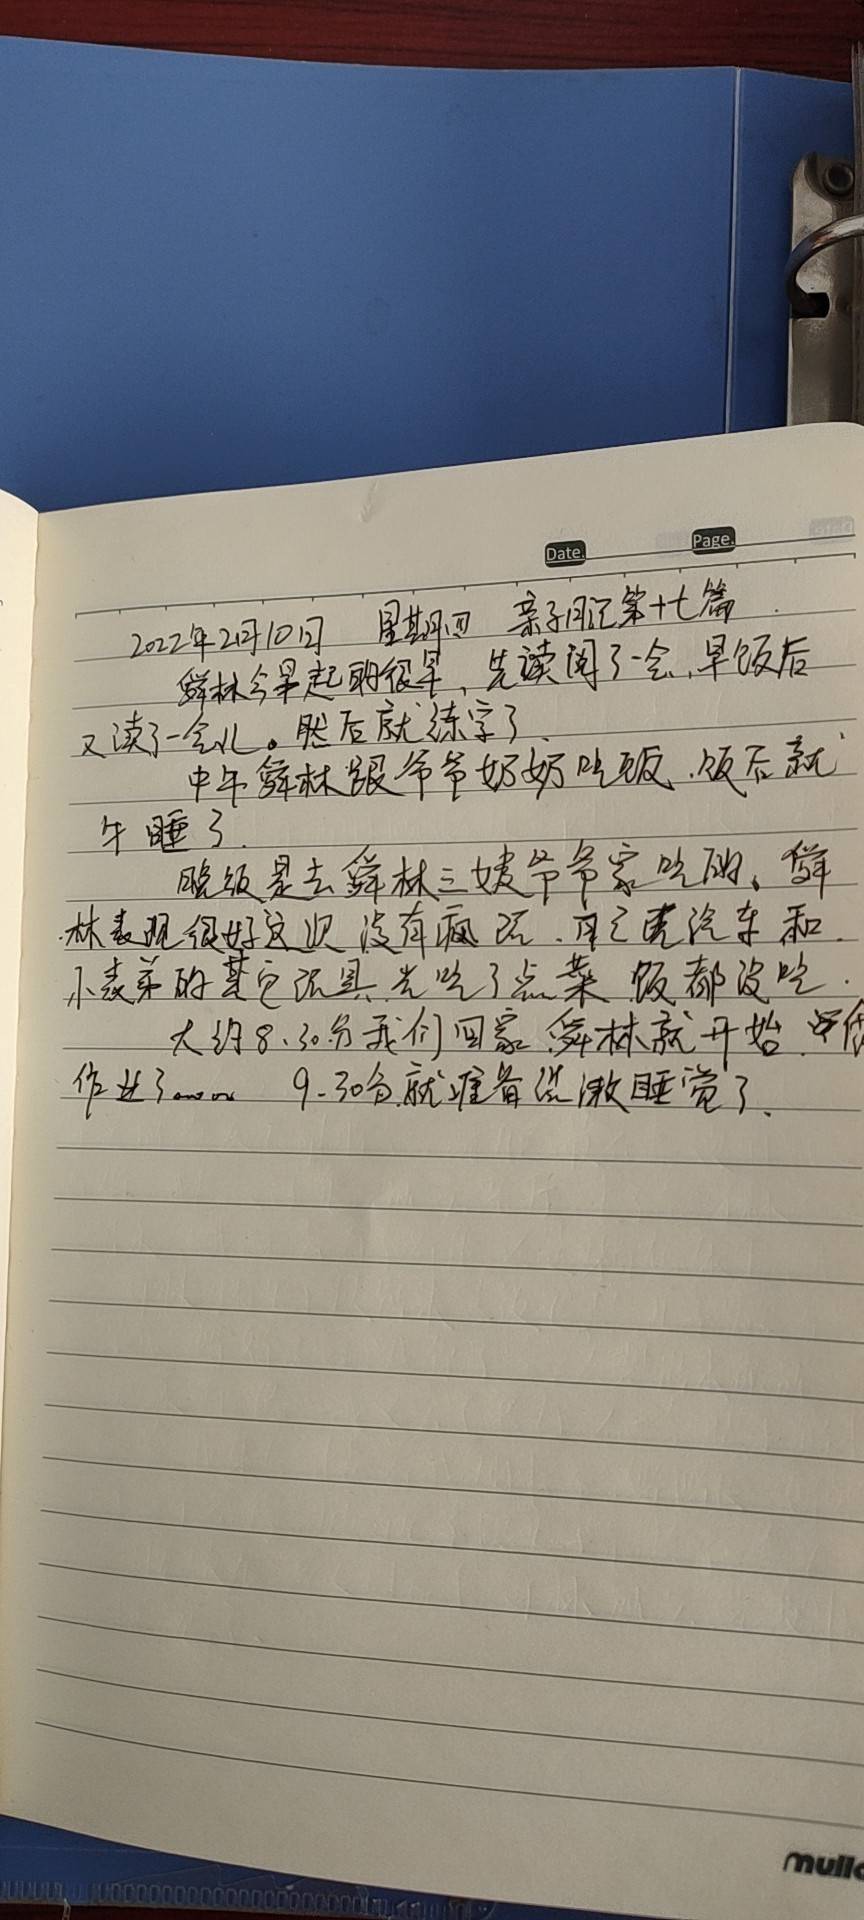 Date.
Page.
2022年2月10日 星期四 亲子日记第十七篇
舜林今早起的很早、先读阅了一会、早饭后
又读了一会儿。然后就练字了.
中午舜林跟爷爷奶奶吃饭.饭后就
午睡了.
晚饭是去舜林三姨爷爷家吃的、舜
林表现很好这次没有疯玩.
小表弟的其它玩具先吃了点菜 饭都没吃.
大约8.30分我们回家 舜林就开始
作业了...... 9-30分就准备洗漱睡觉了.